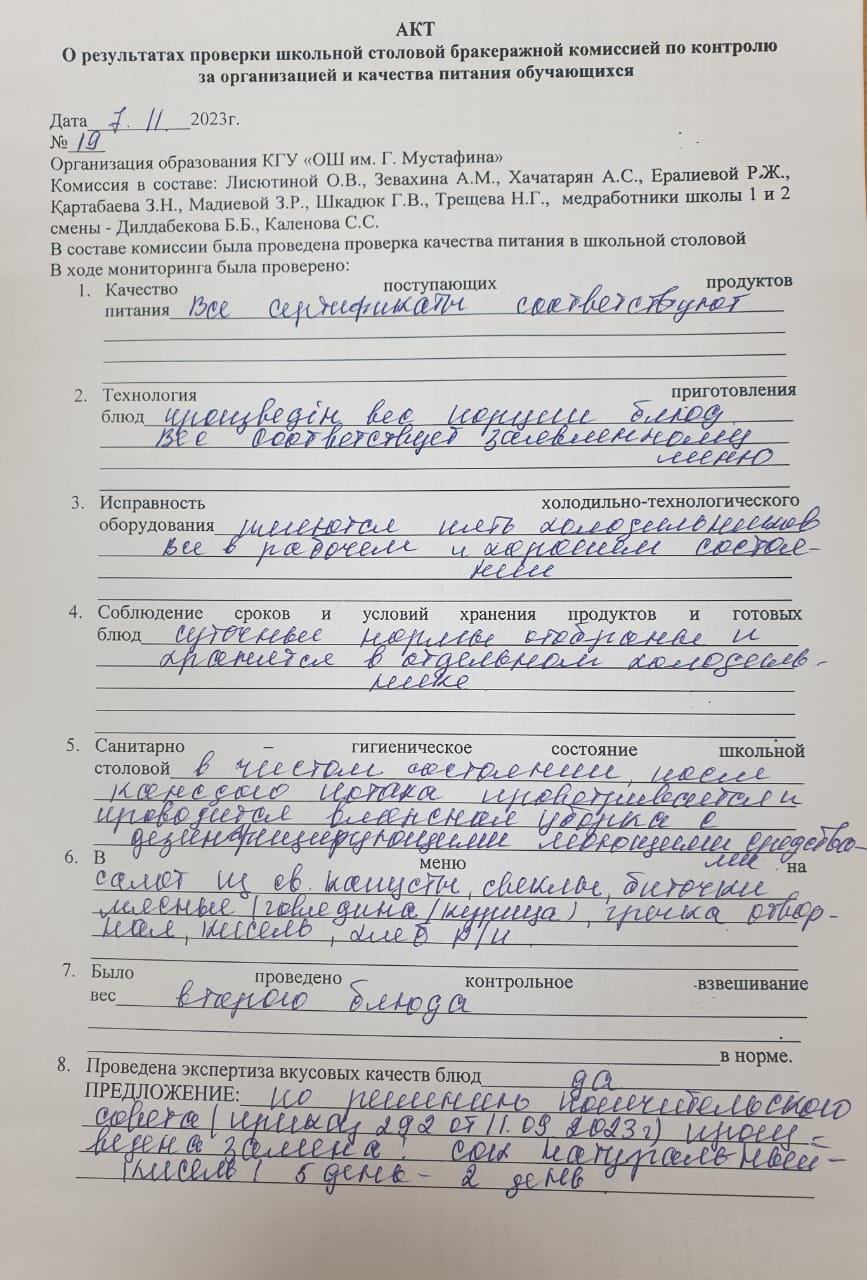 АКТ
О результатах проверки школьной столовой бракеражной комиссией по контролю
за организацией и качества питания обучающихся
Дата 7. 11. 2023г.
№ 19
Организация образования КГУ «ОШ им. Г. Мустафина»
Комиссия в составе: Лисютиной О.В., Зевахина А.М., Хачатарян А.С., Ералиевой Р.Ж.,
Қартабаева З.Н., Мадиевой З.Р., Шкадюк Г.В., Трещева Н.Г., медработники школы 1 и 2
смены - Дилдабекова Б.Б., Каленова С.С.
В составе комиссии была проведена проверка качества питания в школьной столовой
В ходе мониторинга была проверено:
1. Качество поступающих продуктов
питания Все сертификаты соответствуют
2. Технология приготовления
блюд произведён вес порции блюд
Все соответствует заявленному
меню
3. Исправность холодильно-технологического
оборудования имеются пять холодильников
Все в рабочем и хорошем состоя-
нии
4. Соблюдение сроков и условий хранения продуктов и готовых
блюд суточные нормы отобраны и
хранятся в отдельном холодиль-
нике
5. Санитарно – гигиеническое состояние школьной
столовой в чистом состоянии, после
каждого потока проветривается и
проводится влажная уборка с
дезинфицирующими моющими средства-
ми
6. В меню на
салат из св. капусты, свеклы, биточки
мясные (говядина/курица), гречка отвар-
ная, кисель, хлеб р/п
7. Было проведено контрольное взвешивание
вес второго блюда
в норме.
8. Проведена экспертиза вкусовых качеств блюд да
ПРЕДЛОЖЕНИЕ: по решению попечительского
совета (приказ 292 от 11.09 2023г) произ-
ведена замена: сок натуральный-
кисель 5 день - 2 день